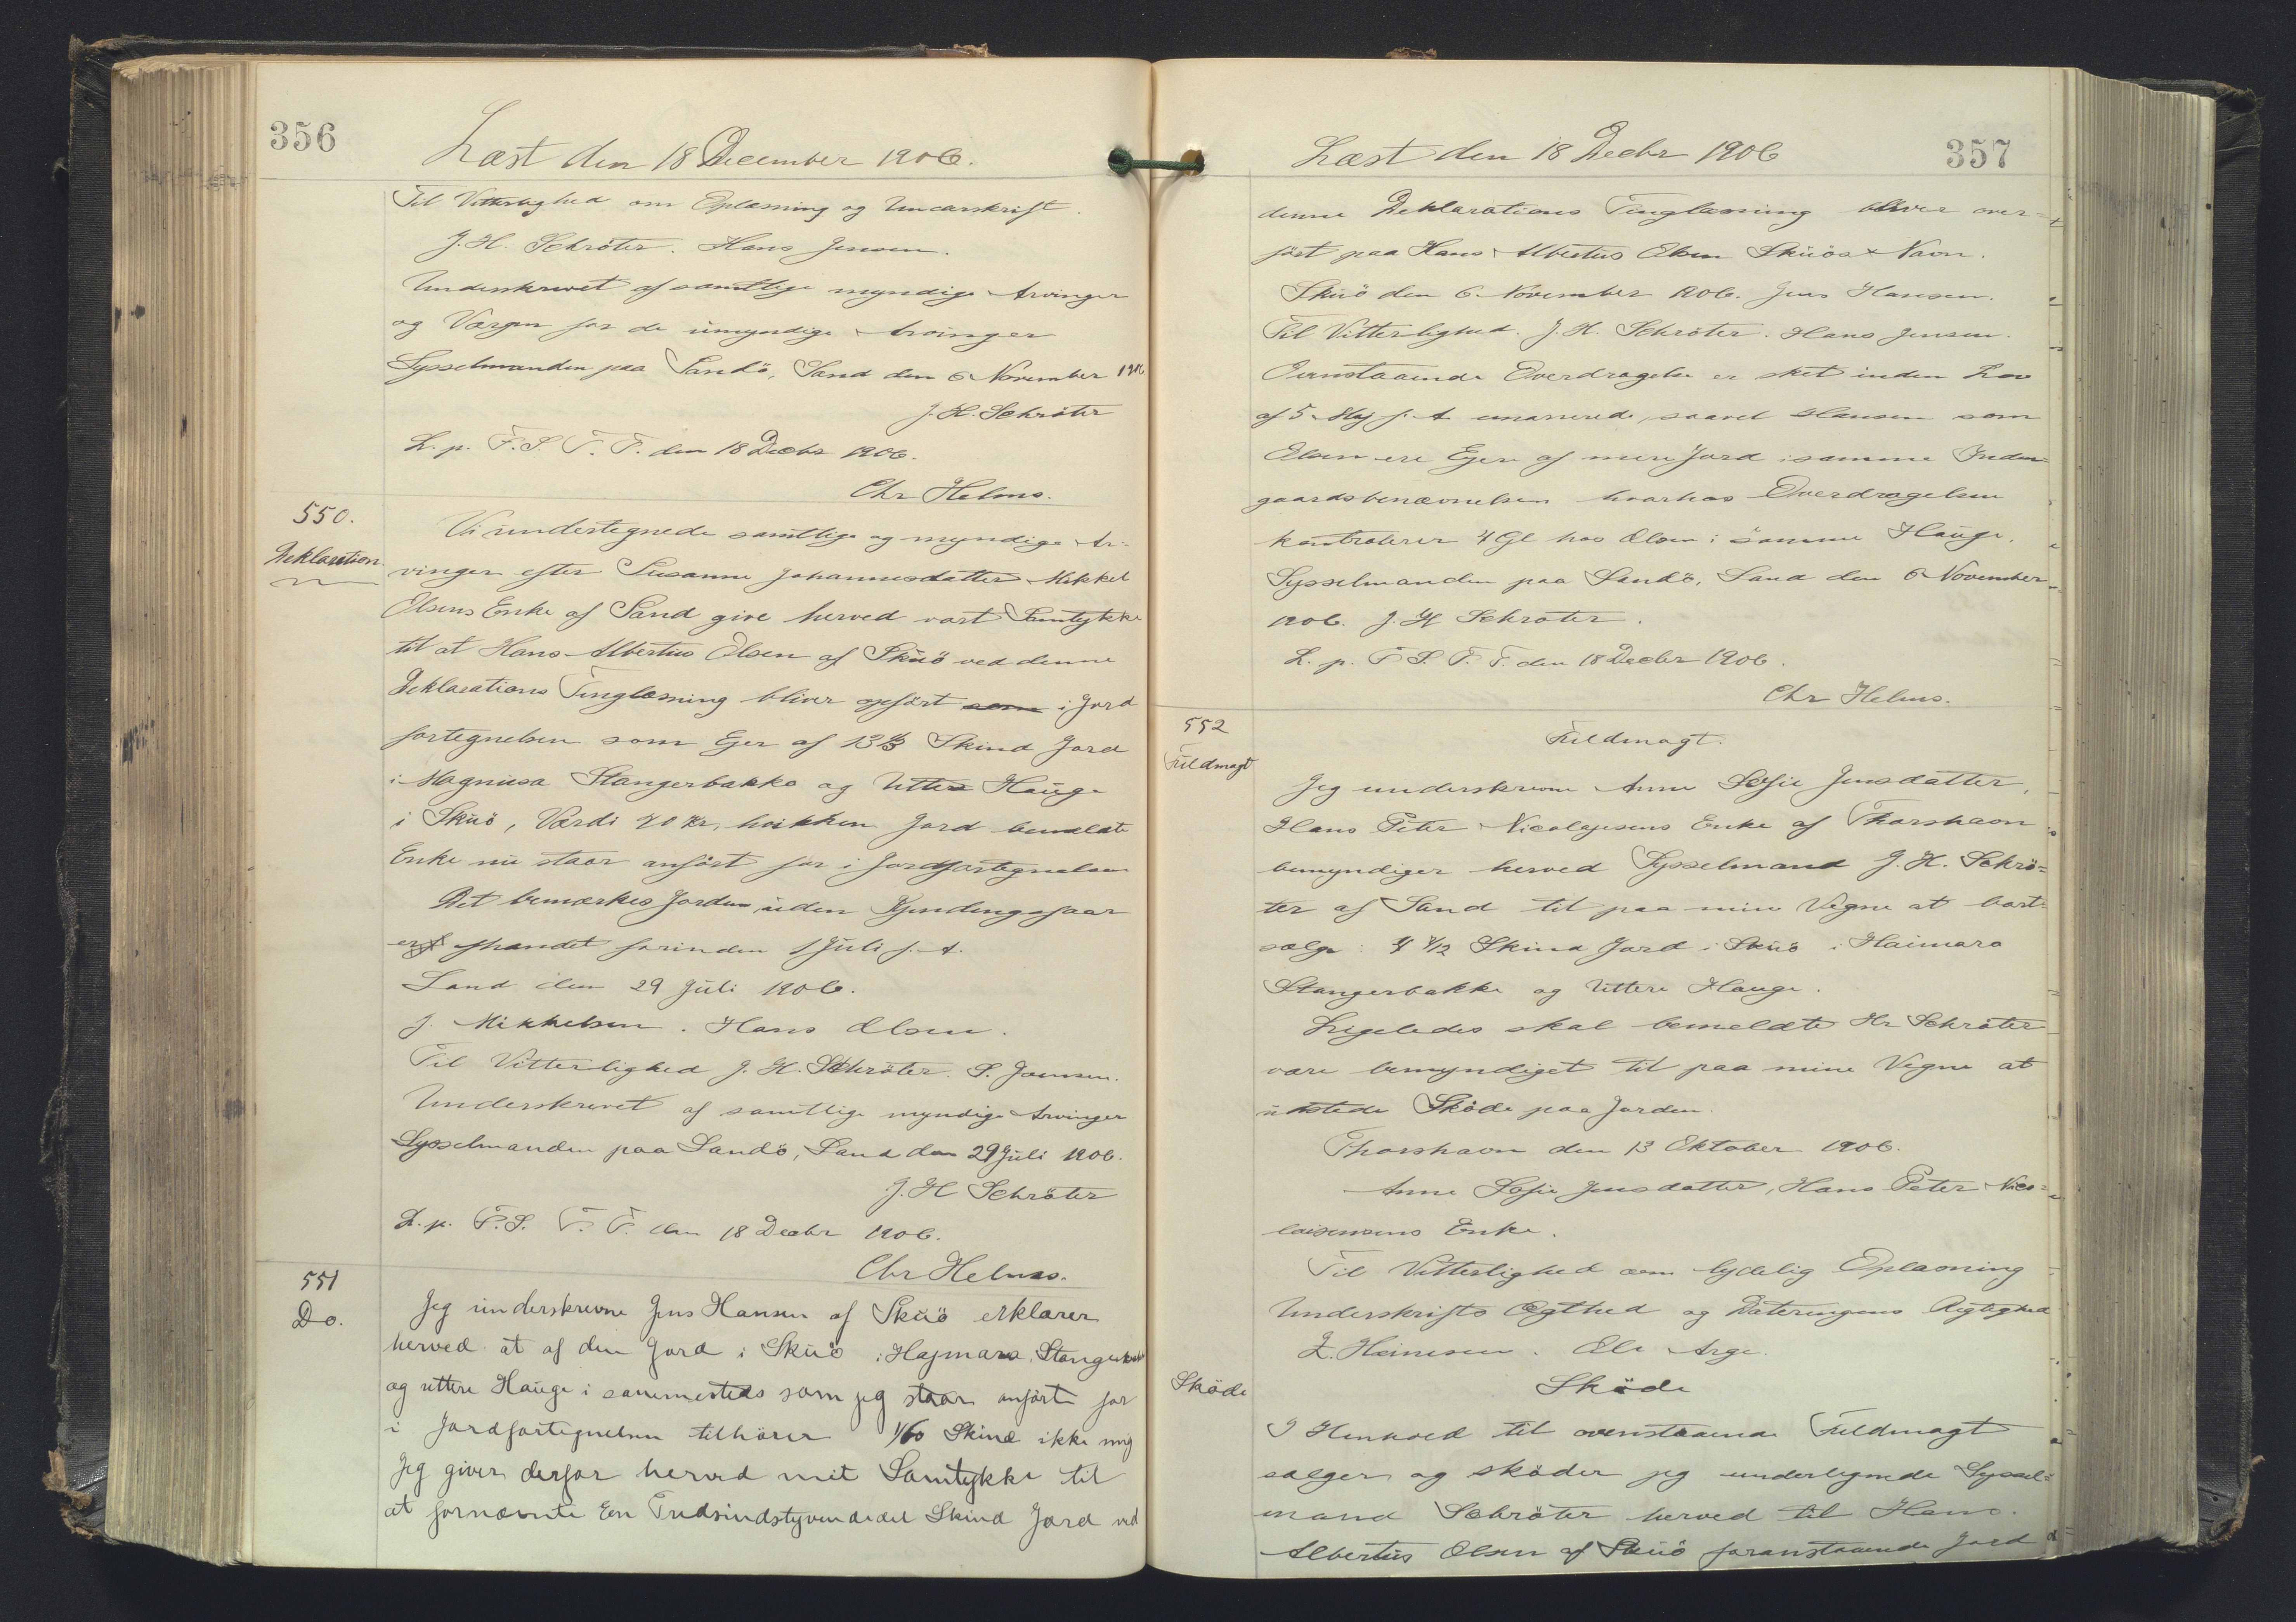 356
Læst den 18 December 1906.
Til Vitterlighed om Oplæsning og Underskrift.
J. H. Schröter. Hans Jensen.
Underskrevet af samtlige myndige Arvinger
og Værgen for de umyndige Arvinger
Sysselmanden paa Sandö, Sand den 6 November 1906
J. H. Schröter
L. p. F. S. T. T. den 18 Decbr 1906.
Chr Helms.
550.
Deklaration.
Vi undertegnede samtlige og myndige Ar-
vinger efter Susanne Johannesdatter Mikkel
Olsens Enke af Sand give herved vort Samtykke
til at Hans Albertus Olsen af Skuö ved denne
Deklarations Tinglæsning bliver opfört som i Jord
fortegnelsen som Ejer af 13 1/3 Skind Jord
i Magnusa Stangerbakke og Uttere Hauge
i Skuö, Værdi 40 Kr, hvilken Jord bemeldte
Enke nu staar anfört for i Jordfortegnelsen
Det bemærkes Jorden uden Gyndingsfaar
er afhændet forinden 1 Juli f. A.
Sand den 29 Juli 1906.
J. Mikkelsen. Hans Olsen.
Til Vitterlighed J. H. Schröter. S. Joensen.
Underskrevet af samtlige myndige Arvinger
Sysselmanden paa Sandö, Sand den 29 Juli 1906.
J. H Schröter
L. p. F. S. T. T. den 18 Decbr 1906.
Chr Helms.
551
Do.
Jeg underskrevne Jens Hansen af Skuö erklærer
herved at af den Jord i Skuö i Hajmara, Stangerbak
og uttere Hauge i sammesteds som jeg staar anfört for
i Jordfortegnelsen tilhörer 1/60 Skind ikke mig
Jeg giver derfor herved mit Samtykke til
at fornævnte En Tredsindstyvendedel Skind Jord ved
Læst den 18 Decbr 1906
357
denne Deklarations Tinglæsning bliver over-
fört paa Hans Albertus Olsen Skuös Navn.
Skuö den 6 November 1906. Jens Hansen.
Til Vitterlighed. J. H. Schröter. Hans Jensen.
Ovenstaaende Overdragelse er sket inden Lov
af 5 Maj f. A saavel Hansen som
Olsen ere Ejere af mere Jord i samme Inden-
gaardsbenævnelsen hvorhos Overdragelsen
4 Gl hos Olsen i samme Hauge.
Sysselmanden paa Sandö, Sand den 6 November
1906. J. H Schröter.
L. p. F S. T. T. den 18 Decbr 1906.
Chr Helms.
552
Fuldmagt
Fuldmagt.
Jeg underskrevne Anne Sofie Jensdatter,
Hans Peter Nicolajesens Enke af Thorshavn
bemyndiger herved Sysselmand J. H. Schrö-
ter af Sand til paa mine Vegne at bort-
sælge: Skind Jord i Skuö i Haimara
Stangerbakke og Uttere Hauge.
Ligeledes skal bemeldte Hr Schröter
være bemyndiget til paa mine Vegne at
udstede Sköde paa Jorden.
Thorshavn den 13 Oktober 1906.
Anne Sofie Jensdatter, Hans Peter Nico-
laisensens Enke.
Til Vitterlighed om lydelig Oplæsning
Underskrifts Ægthed og Dateringens Rigtighed
Z. Heinesen. Ole Arge.
Sköde
Sköde
I Henhold til ovenstaaende Fuldmagt
sælger og sköder jeg undertegnede Syssel-
mand Schröter herved til Hans
Albertus Olsen af Skuö foranstaaende Jord